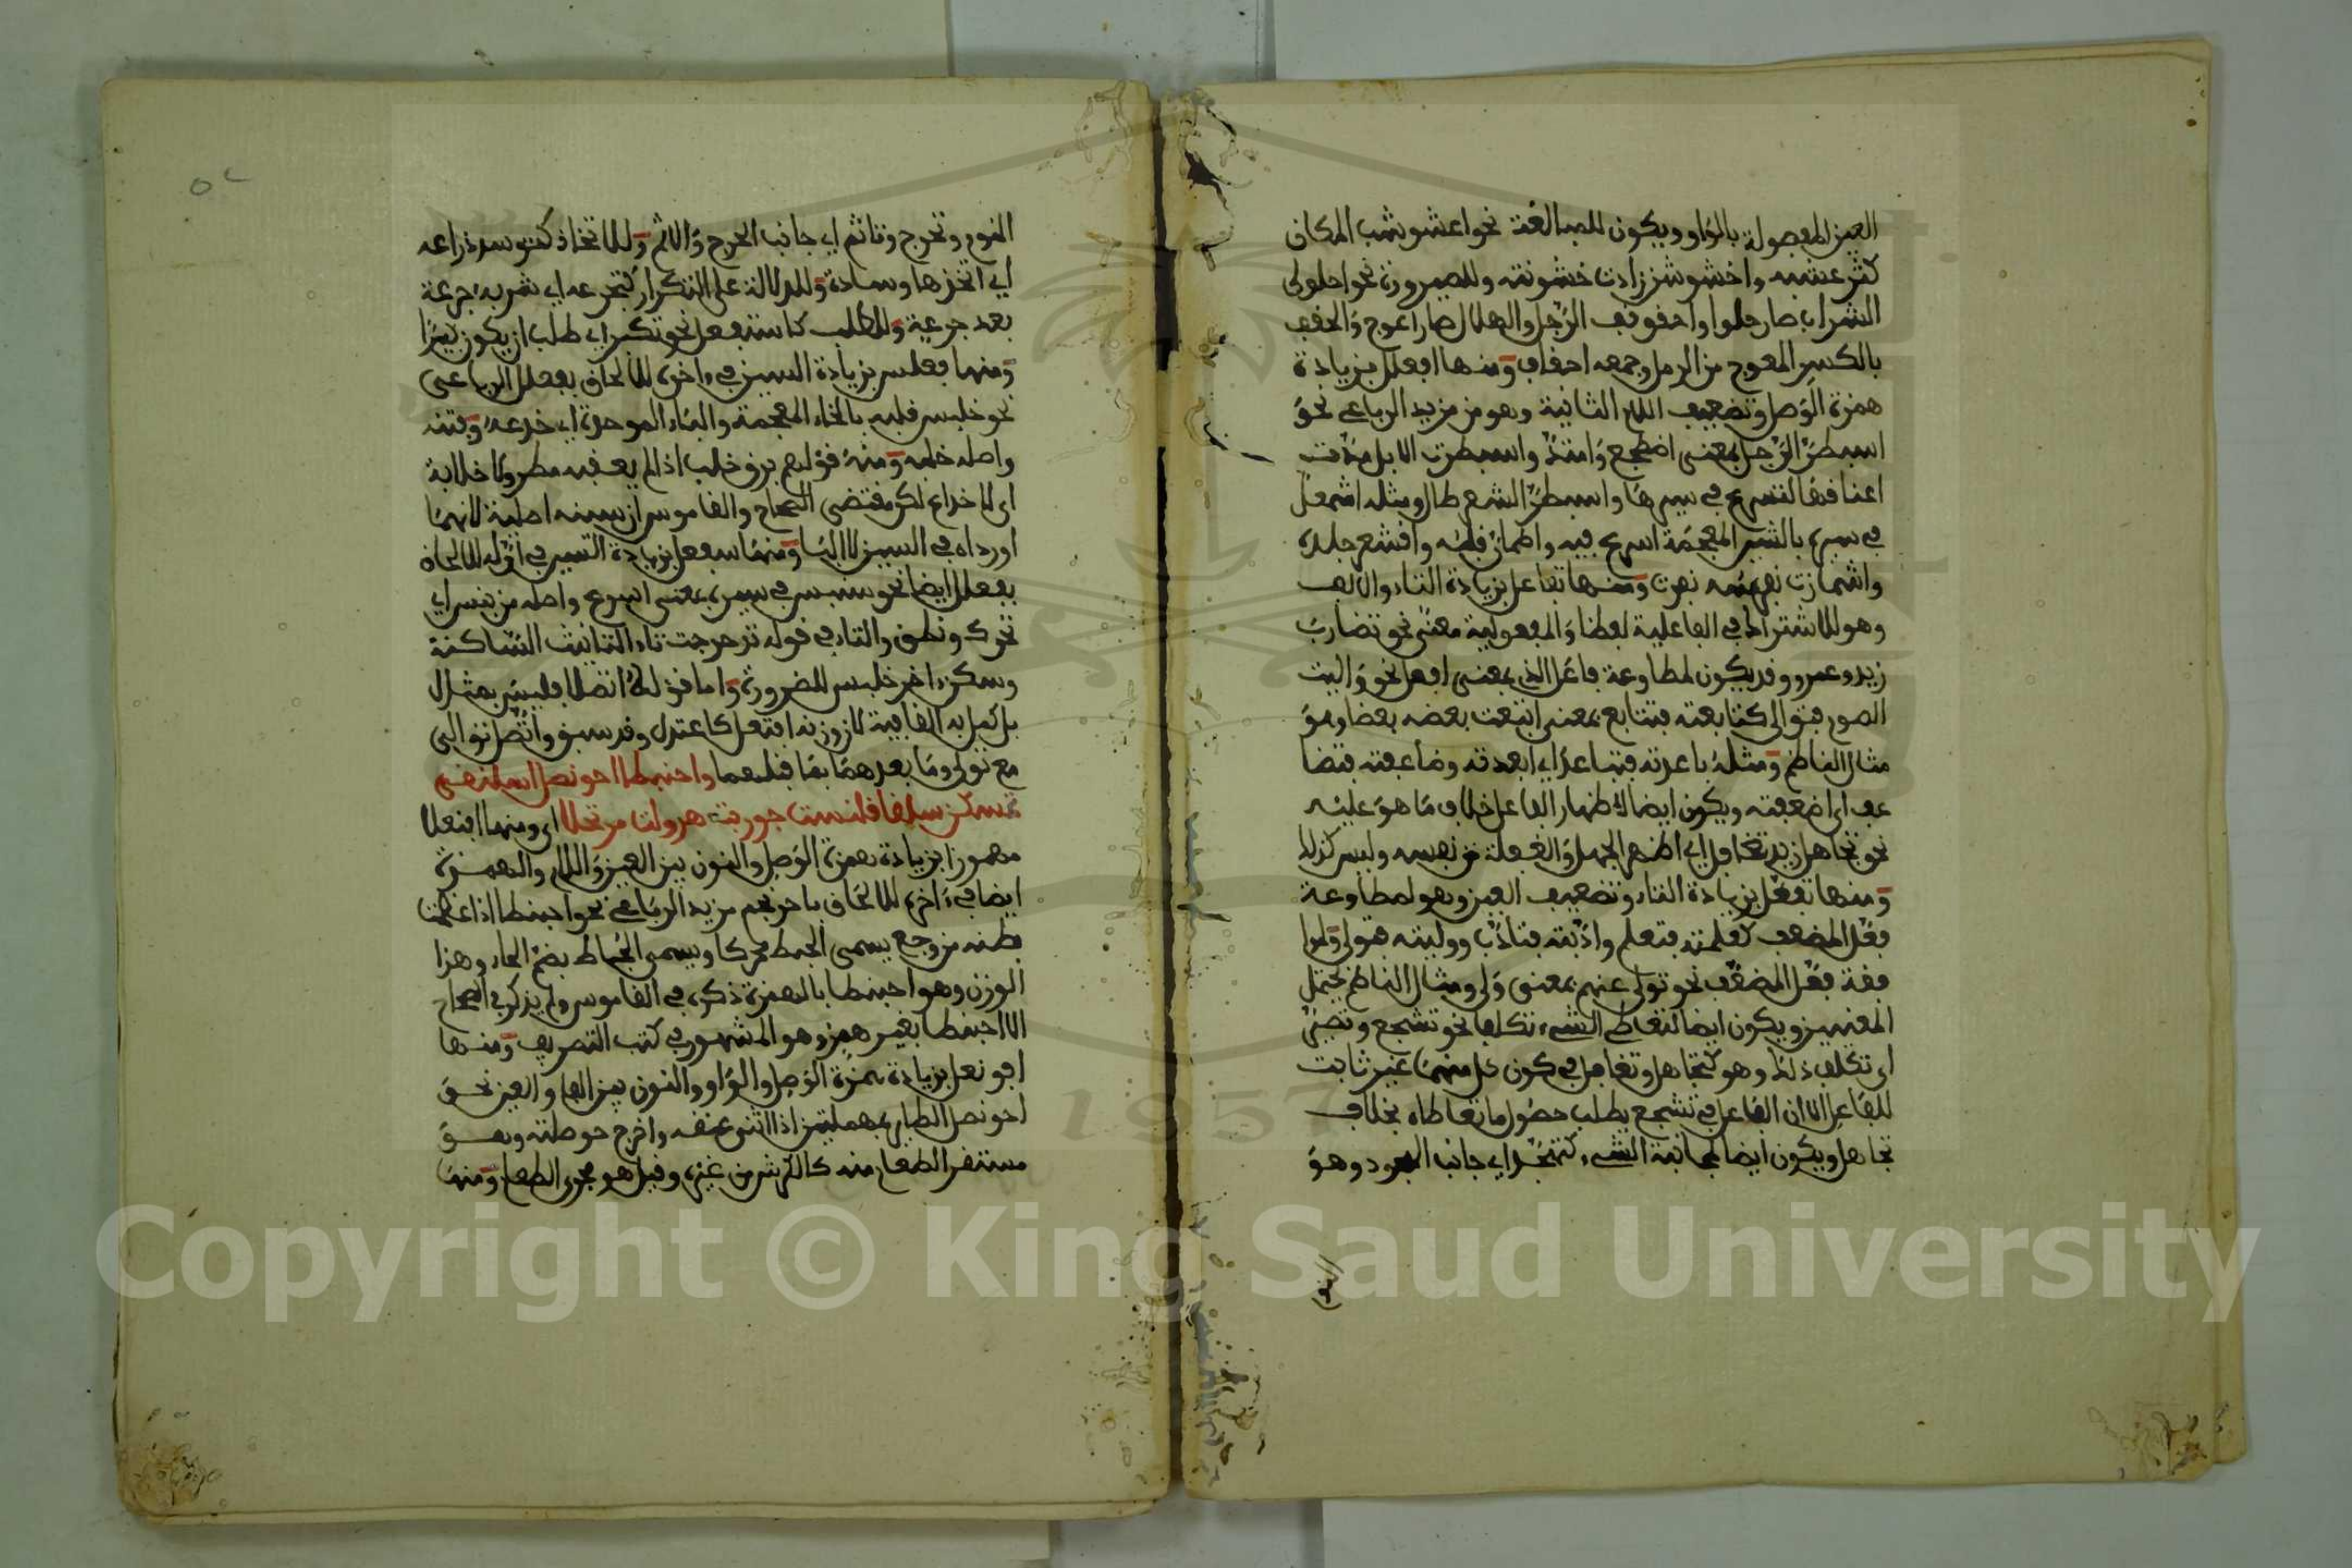 العين المفصولة بالواو ويكون للمبالغة نحو اعشوشب المكان
كثر عشبه واخشوشن زادت خشونته وللصيرورة نحو احلولى
الشراب صار حلوا واحقوقف الرجل والهلال صار اعوج والحقف
بالكسر المعوج من الرمل وجمعه احقاف ومنها افعلل بزيادة
همزة الوصل وتضعيف اللام الثانية وهو من مزيد الرباعي نحو
اسبطر الرجل بمعنى اضطجع وامتد واسبطرت الابل مدت
اعناقها لتسرع في سيرها واسبطر الشعر طال ومثله اشمعل
في سيره بالشين المعجمة اسرع فيه واطمان قلبه واقشعر جلده
واشمازت نفسه نفرت ومنها تفاعل بزيادة التاء والالف
وهو للاشتراك في الفاعلية لفظا والمفعولية معنى نحو تضارب
زيد وعمرو وقد يكون لمطاوعة فاعل الذي بمعنى افعل نحو واليت
الصوم فتوالى كتابعته فتتابع بمعنى اتبعت بعضه بعضا وهو
مثال الناظم ومثله باعدته فتباعد اي ابعدته وضاعفته فتضا
عف اي اضعفته ويكون ايضا لاظهار الفاعل خلاف ما هو عليه
نحو تجاهل زيد تغافل اي اظهر الجهل والغفلة من نفسه وليس كذلك
ومنها تفعل بزيادة التاء وتضعيف العين وهو لمطاوعة
فعل المضعف كعلمته فتعلم وادبته فتادب ووليته فتولى ولموا
فقة فعل المضعف نحو تولى عنهم بمعنى ولى ومثال الناظم يحتمل
المعنيين ويكون ايضا لتعاطي الشيء تكلفا نحو تشجع وتصبر
اي تكلف ذلك وهو كتجاهل وتغافل في كون كل منهما غير ثابت
للفاعل الا ان الفاعل في تشجع يطلب حصول ما تعاطاه بخلاف
تجاهل ويكون ايضا لمجانبة الشيء كتهجد اي جانب الهجود وهو
النوم وتحرج وتاثم اي جانب الحرج والاثم وللاتخاذ كتوسد ذراعه
اي اتخذها وسادة وللدلالة على التكرار كتجرعه اي شربه جرعة
بعد جرعة وللطلب كاستفعل نحو تكبر اي طلب ان يكون كبيرا
ومنها فعلس بزيادة السين في اخره للالحاق بفعلل الرباعي
نحو خلبس قلبه بالخاء المعجمة والباء الموحدة اي خدعه وفتنه
واصله خلبه ومنه قولهم برق خلب اذا لم يعقبه مطر ولا خلابة
اي لا خداع لكن مقتضى الصحاح والقاموس ان سينه اصلية لانهما
اورداه في السين لا الباء ومنها سفعل بزيادة السين في اوله للالحاق
بفعلل ايضا نحو سنبس في سيره بمعنى اسرع واصله من نبس اي
تحرك ونطق والتاء في قوله تدحرجت تاء التانيث الساكنة
وسكن اخر خلبس للضرورة واما قوله اتصلا فليس بمثال
بل كمل به القافية لان وزنه افتعل كاعتدل وقد سبق واتصل توالى
مع تولى وما بعدهما بما قبلهما واحبنطا احونصل اسلنقى
تمسكن سلقا قلنست جوربت هرولت مرتحلا اي ومنها افنعلا
مهموزا بزيادة همزة الوصل والنون بين العين واللام والهمزة
ايضا في اخره للالحاق باحرنجم مزيد الرباعي نحو احبنطا اذا عظمت
بطنه من وجع يسمى الحبط محركا ويسمى الحباط بضم الحاء وهذا
الوزن وهو احبنطا بالهمزة ذكره في القاموس ولم يذكر في الصحاح
الا احبنطا بغير همز وهو المشهور في كتب التصريف ومنها
افونعل بزيادة همزة الوصل والواو والنون بين الفاء والعين نحو
احونصل الطاير بمهملتين اذا ثنى عنقه واخرج حوصلته وهو
مستقر الطعام منه كالكرش من غيره وقيل هو مجرى الطعام ومنها
Copyright © King Saud University
1957